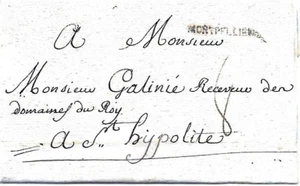 A Monsieur
MONTPELLIER
Monsieur Galinié Receveur des
domaines du Roy
8
a St. hypolite